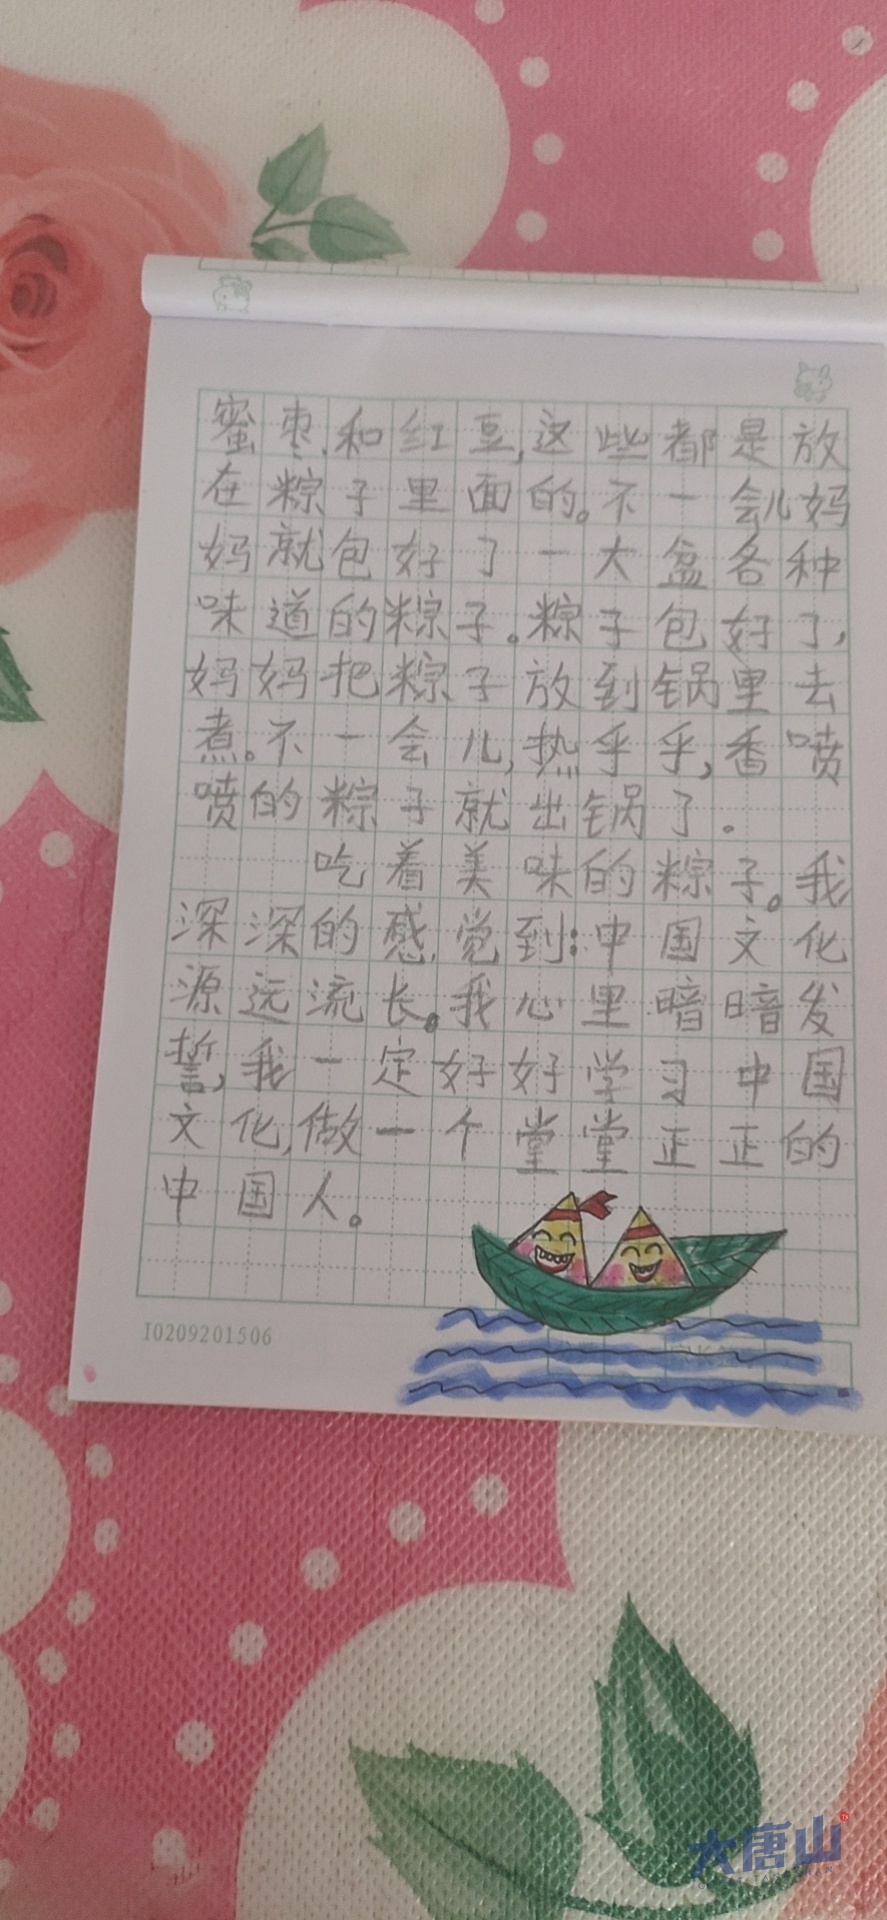 蜜枣、和红豆,这些都是放
在粽子里面的。不一会儿妈
妈就包好了一大盆各种
味道的粽子。粽子包好了,
妈妈把粽子放到锅里去
煮。不一会儿,热乎乎,香喷
喷的粽子就出锅了。
吃着美味的粽子。我
深深的感觉到:中国文化
源远流长。我心里暗暗发
誓,我一定好好学习中国
文化,做一个堂堂正正的
中国人。
I0209201506
大唐山